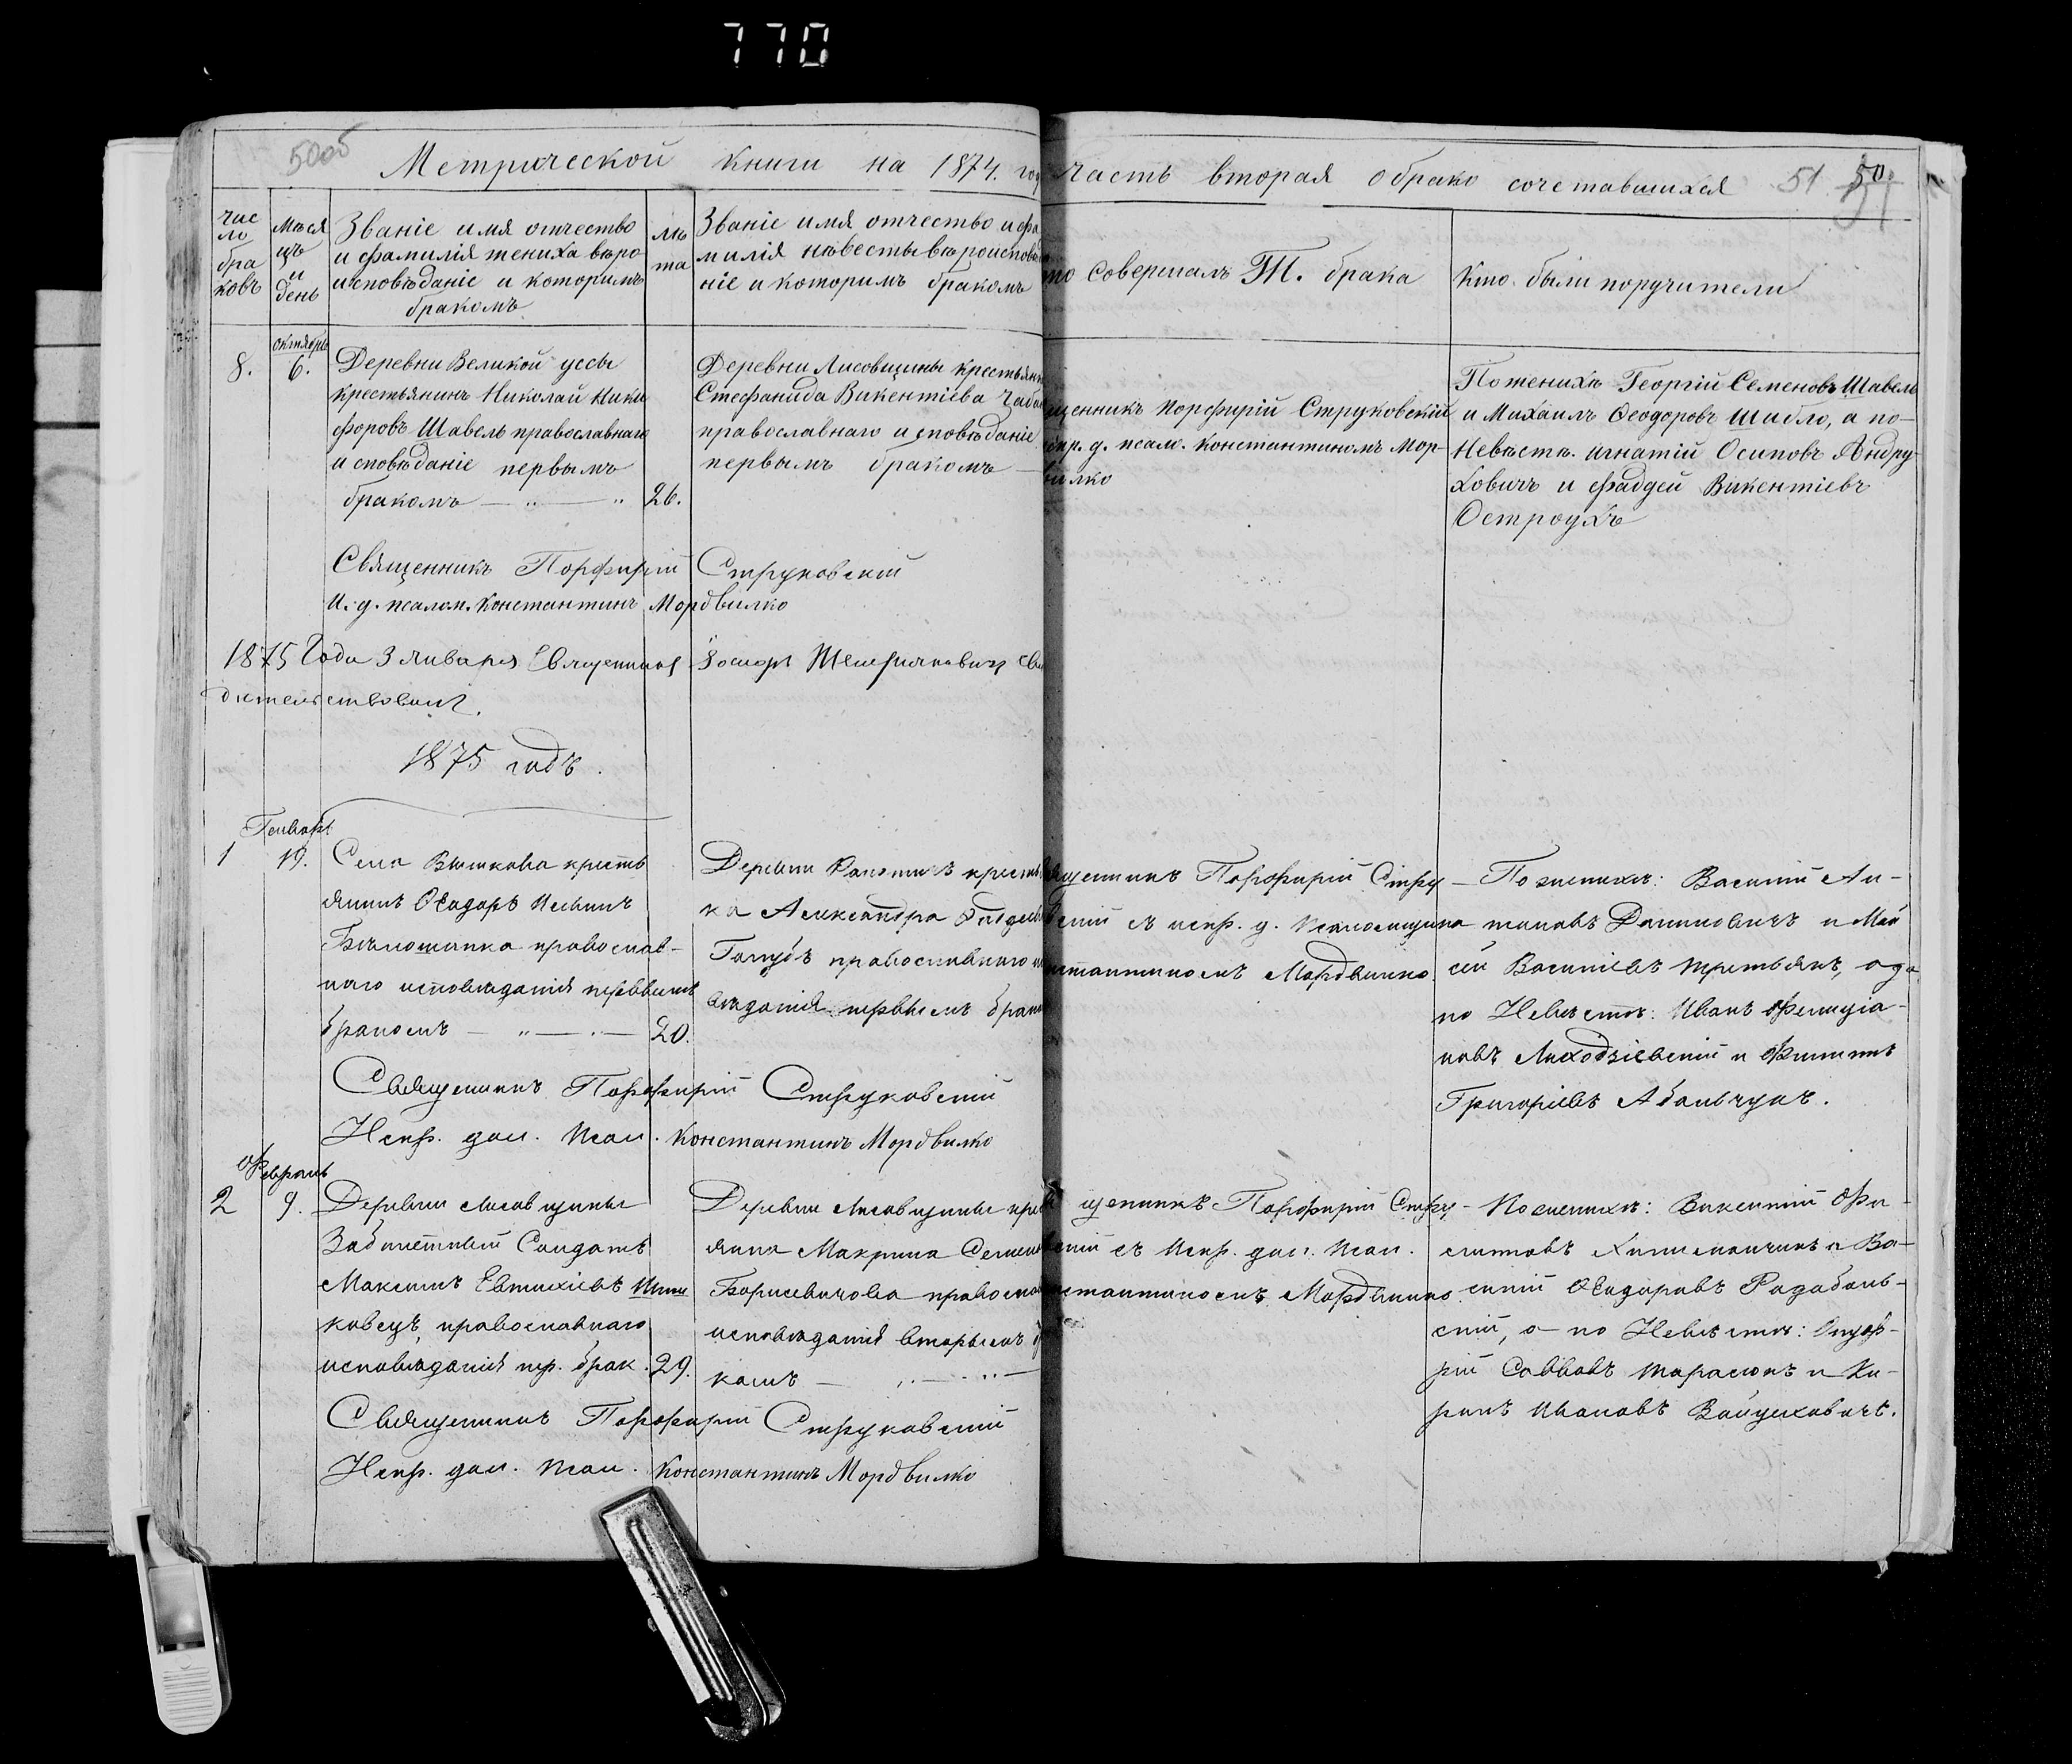 770
50об
Метрической книги на 1874. год
часть вторая о брако сочетавшихся 51 50
Чис
ло
бра
ковъ
Мѣся
цъ
и
день
Званіе имя отчество
и фамилія жениха вѣро
исповѣданіе и которимъ
бракомъ
лѣ
та
Званіе имя отчество и фа
милія нѣвесты вѣроисповѣд
ніе и которимъ бракомъ
то совершалъ Т. брака
Кто были поручители
октября
8. 6.
Деревни Великой уссы
крестьянинъ Николай Ники
форовъ Шавель православнаго
исповѣданіе первымъ
бракомъ — „ — „ 26.
Деревни Лисовщины крестьянк
Стефанида Викентіева
православнаго исповѣданіе
первымъ бракомъ —
щенникъ Порфирій Струковскій
спр. д. псалом. Константиномъ Мор-
вилко
По женихѣ Георгій Семеновъ Шавель
и Михаилъ Ѳеодоровъ Шабло, а по-
Невѣстѣ. игнатій Осиповъ Андру
ховичъ и фаддей Викентіевъ
Остроухъ
Священникъ Порфирій Струковскій
И. д. псалом. Константинъ Мордвилко
1875 Года 3 января Священникъ Іосифъ сви
дѣтельствовалъ.
1875 годъ.
Генварь
1 19.
Села Вѣшкова кресть
янинъ Ѳеодоръ Ильинъ
православ-
наго исповѣданія первымъ
бракомъ — „ — . — 20.
Деревни крестья
ка Александра Фаддеев
Голубъ православнаго и
вѣданія первымъ брако
ященникъ Порфирій Стру
скій съ испр. д. псаломщика
нстантиномъ Мордвилко
— По женихѣ: Василій Ан-
тоновъ Даниловичъ и Мой
сей Васильевъ Третьякъ, а да
по Невѣстѣ: Иванъ Фелиціа-
новъ Лиходзіевскій и Филиппъ
Григоріевъ Абльчукъ.
Священникъ Порфирій Струковскій
Испр. дол. Псал. Константинъ Мордвилко
Февраль
2 9.
Деревни Лисовщины
Забилетный Солдатъ
Максимъ Евтихіевъ
ковецъ, православнаго
исповѣданія пер. брак. 29.
Деревни Лисовщины кре
янка Макрина Семен
Борисевичова правосла
исповѣданія вторымъ б
комъ — „ — „ —
щенникъ Порфирій Стру
скій съ Испр. дол. Псал.
нстантиномъ Мордвилко
— По женихѣ: Викентій Фи-
липповъ и Ва-
силій Ѳеодоровъ
скій, а по Невѣстѣ: Онуф-
рій Саввовъ Тарасюкъ и Ки-
рилъ Ивановъ Войцеховичъ.
Священникъ Порфирій Струковскій
Испр. дол. Псал. Константинъ Мордвилко